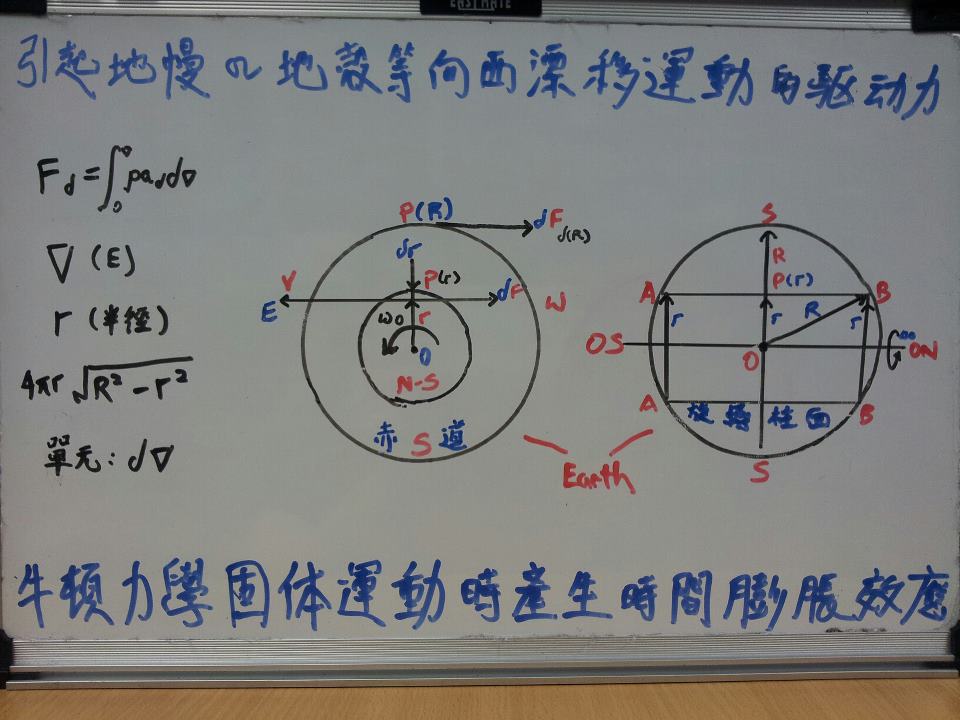 EASTMATE
引起地慢の地殼等向西漂移運動的驱动力
F_d = ∫_0^▽ ρa_d d▽
▽ (E)
r (半徑)
4πr √(R² − r²)
單元: d▽
P(R)
dF_d(R)
dr
P(r)
V
dF
E
W
ω0
r
O
N-S
赤S道
Earth
S
R
P(r)
A
B
r
r
R
r
OS
O
ON
A
旋轉柱面
B
S
牛頓力學固体運動時產生時間膨脹效應